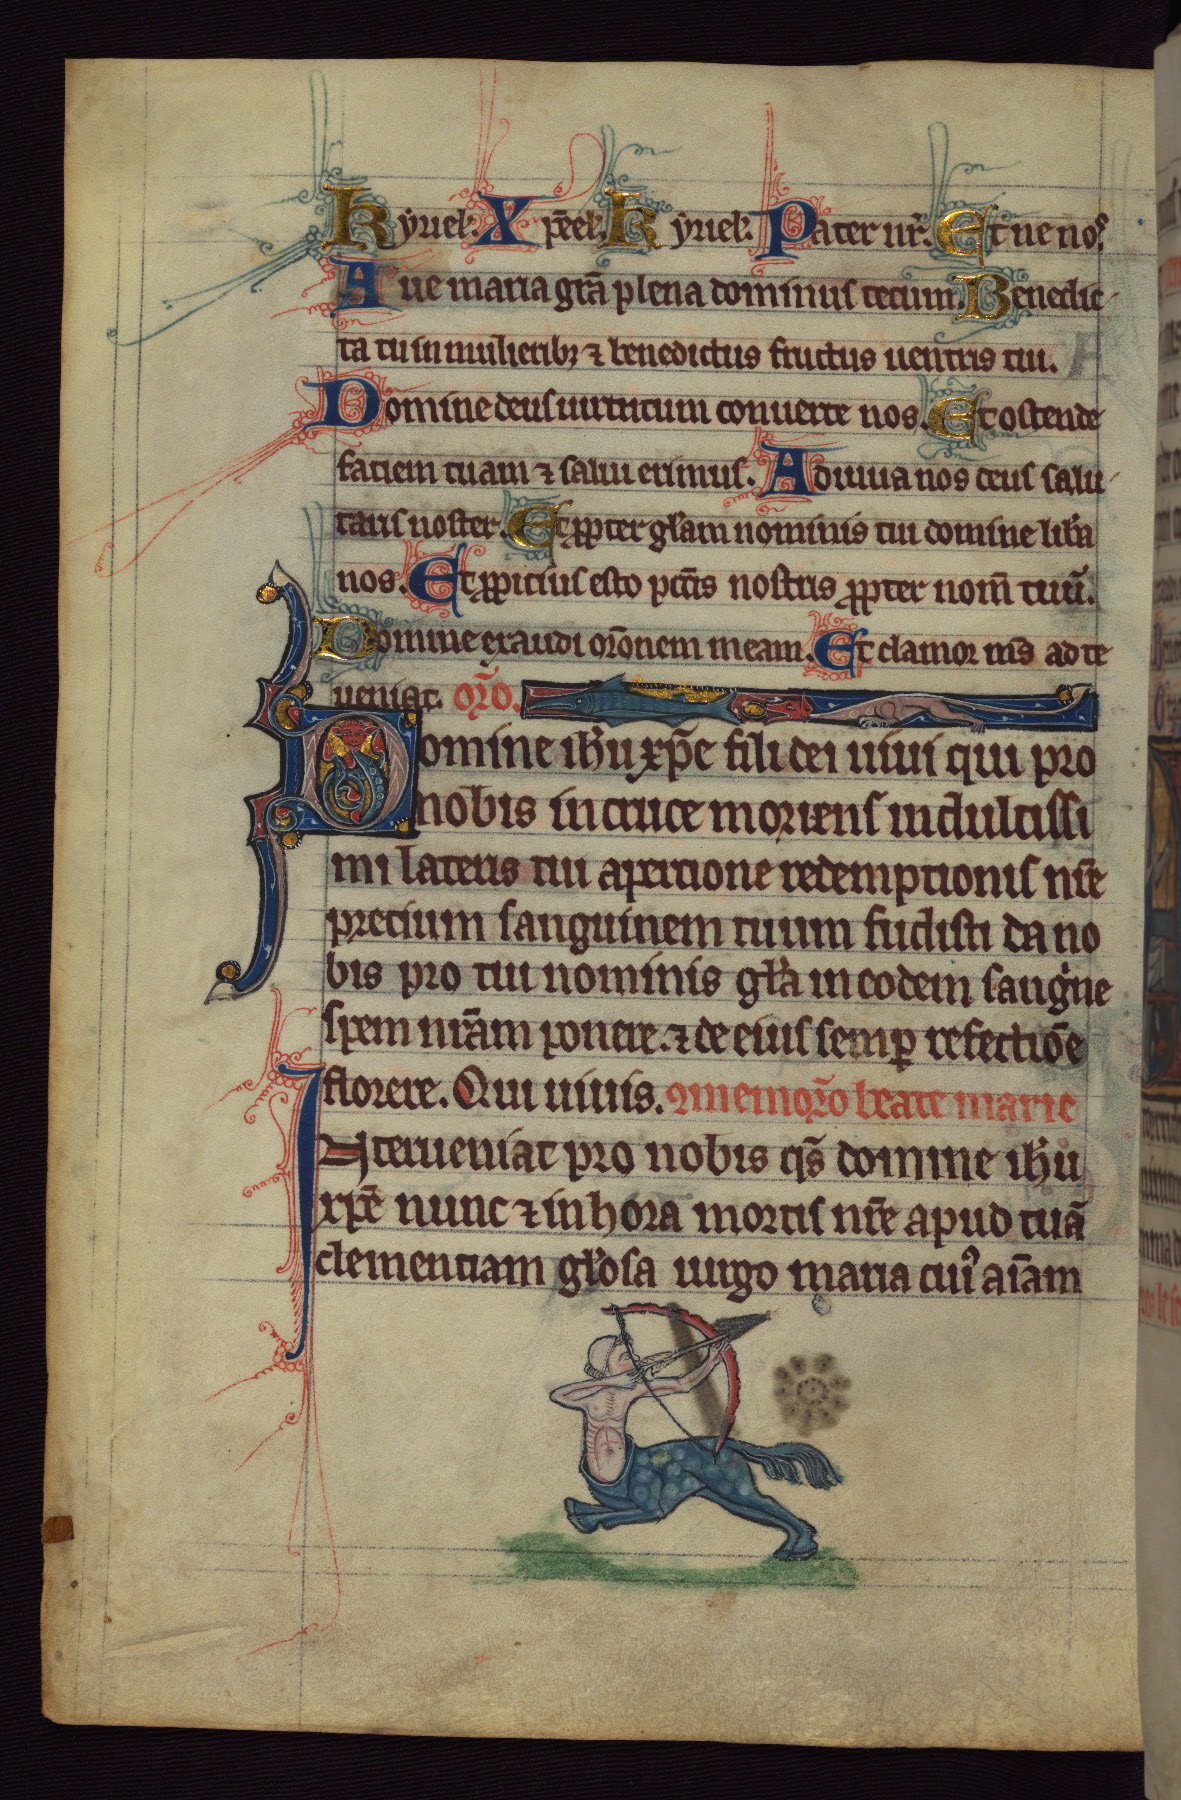 Kyriel'. Xp̄eel'. Kyriel'. Pater nr̄. Et ne nos.
Aue maria grā plena dominus tecum. Benedic-
ta tu in mulieribꝫ ⁊ benedictus fructus uentris tui.
Domine deus uirtutum conuerte nos. Et ostende
faciem tuam ⁊ salui erimus. Adiuua nos deus salu-
taris noster. Et ꝓpter gl'am nominis tui domine lib'a
nos. Et ꝓpicius esto pctīs nostris ꝓpter nom̄ tuū.
Domine exaudi orōnem meam. Et clamor m̄s ad te
ueniat. orō.
Domine ih'u xp̄e fili dei uiui qui pro
nobis in cruce moriens in dulcissi
mi lateris tui apertione redemptionis nr̄e
precium sanguinem tuum fudisti da no
bis pro tui nominis gl'a in eodem sangi'ne
spem nr̄am ponere. ⁊ de eius semꝑ refectiōe
florere. Qui uiuis. ꝯmemorō beate marie
Interueniat pro nobis qs̄ domine ih'u
xp̄e nunc ⁊ in hora mortis nr̄e apud tuā
clementiam gl'osa uirgo maria cuiꝰ aīam